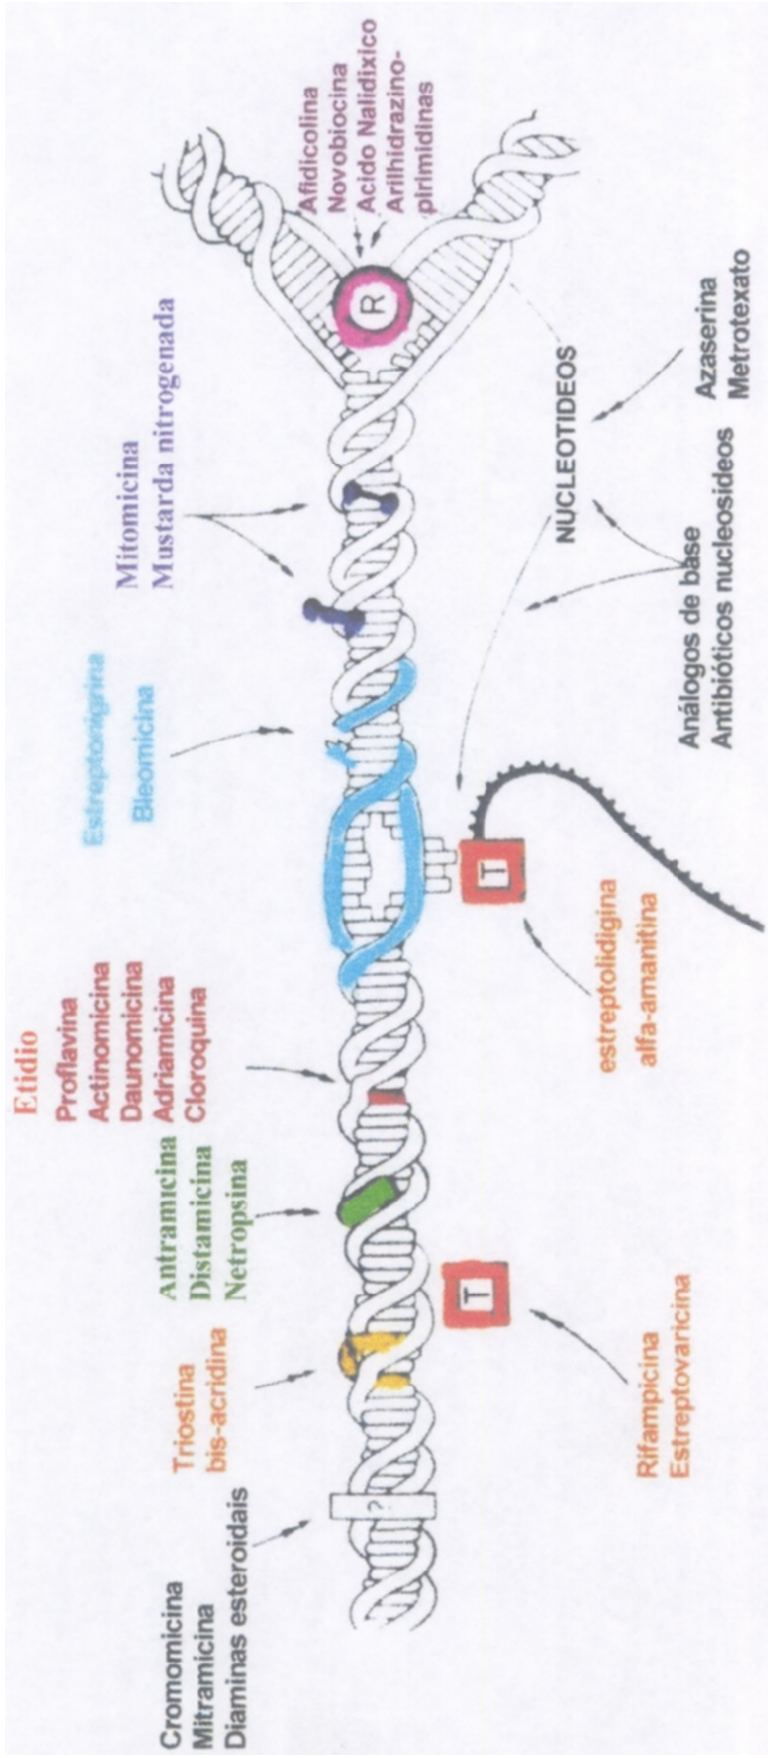 Cromomicina
Mitramicina
Diaminas esteroidais
?
Triostina
bis-acridina
Antramicina
Distamicina
Netropsina
Etidio
Proflavina
Actinomicina
Daunomicina
Adriamicina
Cloroquina
Estreptonigrina
Bleomicina
Mitomicina
Mustarda nitrogenada
Afidicolina
Novobiocina
Acido Nalidixico
Arilhidrazino-
pirimidinas
R
T
Rifampicina
Estreptovaricina
T
estreptolidigina
alfa-amanitina
NUCLEOTIDEOS
Análogos de base
Antibióticos nucleosideos
Azaserina
Metrotexato